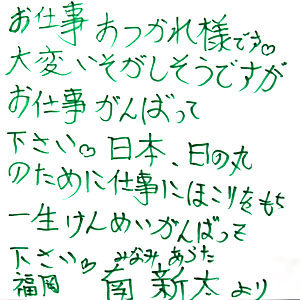 お仕事 おつかれ様です♡
大変いそがしそうですが
お仕事 がんばって
下さい♡ 日本、日の丸
のために仕事にほこりをもち
一生けんめいがんばって
下さい♡ みなみ あらた
福岡 南 新太 より